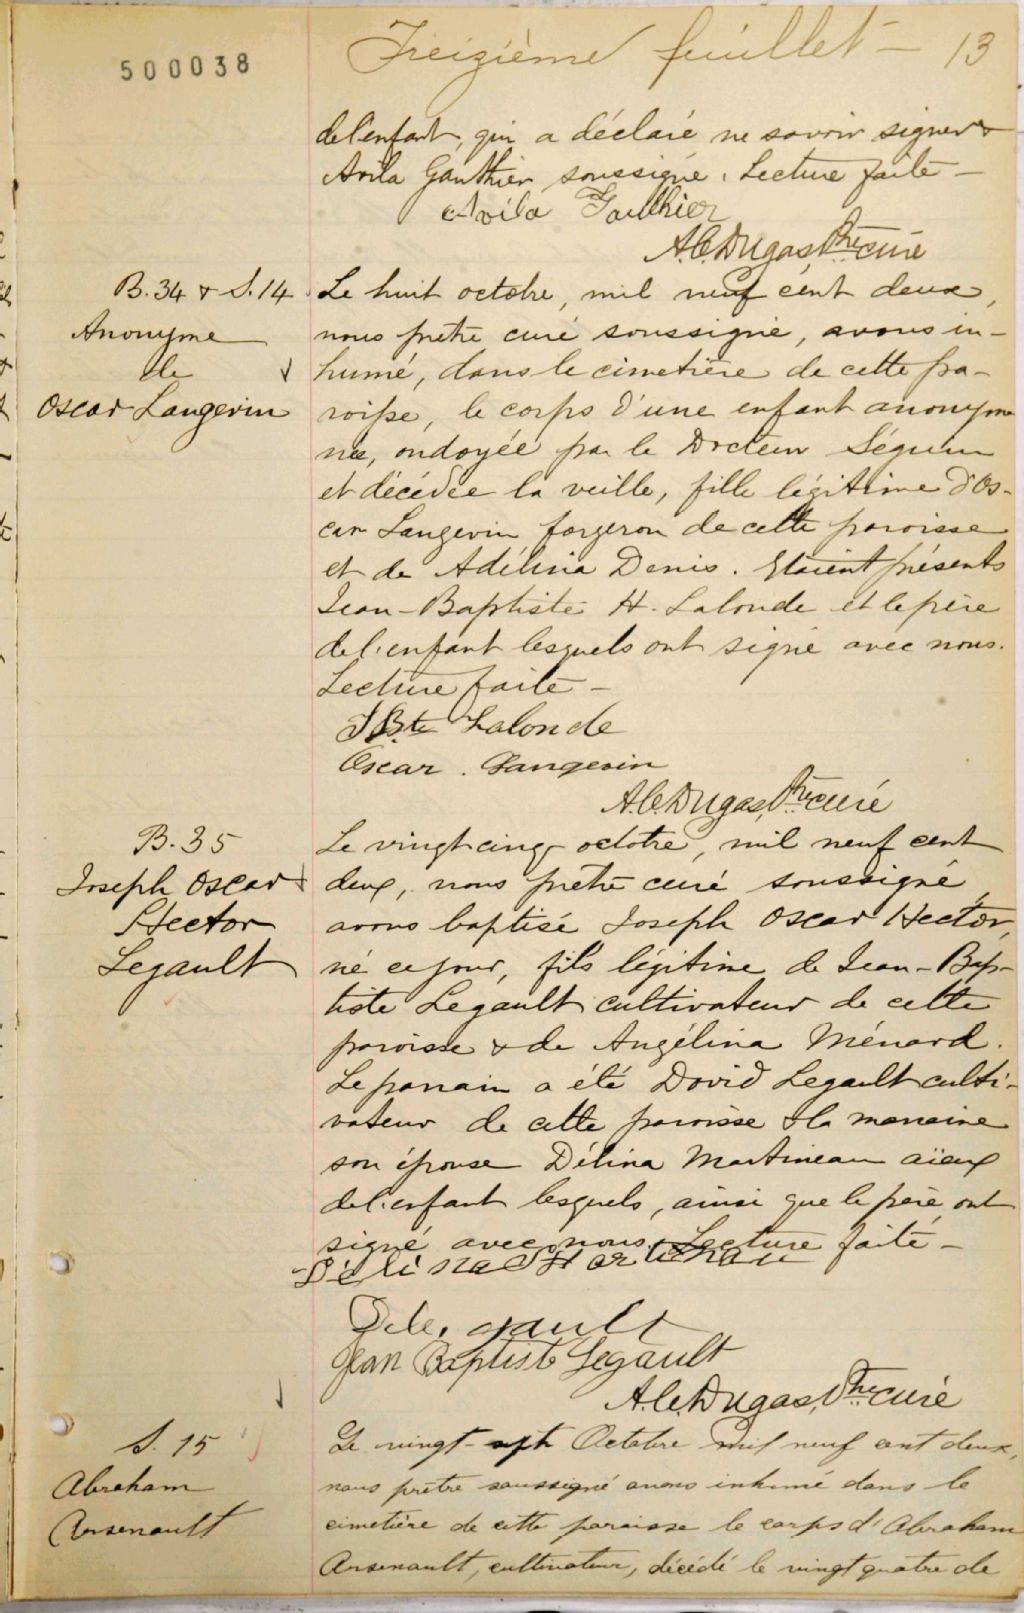 500038
Treizième feuillet — 13
de l'enfant, qui a déclaré ne savoir signer &
Avila Gauthier soussigné. Lecture faite —
Avila Gauthier
A. C. Dugas, Ptre curé
B. 34 & S. 14
Anonyme
de
Oscar Langevin
Le huit octobre, mil neuf cent deux,
nous prêtre curé soussigné, avons in-
humé, dans le cimetière de cette pa-
roisse, le corps d'une enfant anonyme
née, ondoyée par le Docteur Séguin
et décédée la veille, fille légitime d'Os-
car Langevin forgeron de cette paroisse
et de Adélina Denis. Etaient présents
Jean-Baptiste H. Lalonde et le père
de l'enfant lesquels ont signé avec nous.
Lecture faite —
J Bte Lalonde
Oscar. Langevin
A. C. Dugas, Ptre curé
B. 35
Joseph Oscar
Hector
Legault
Le vingt cinq octobre, mil neuf cent
deux, nous prêtre curé soussigné
avons baptisé Joseph Oscar Hector,
né ce jour, fils légitime de Jean-Bap-
tiste Legault cultivateur de cette
paroisse & de Angélina Ménard.
Le parrain a été David Legault culti-
vateur de cette paroisse & la marraine
son épouse Délina Martineau aïeux
de l'enfant lesquels, ainsi que le père ont
signé avec nous. Lecture faite —
Délina Martineau
D Le, gault
Jean Baptiste Legault
A. C. Dugas, Ptre curé
S. 15
Abraham
Arsenault
Le vingt-sept Octobre mil neuf cent deux,
nous prêtre soussigné avons inhumé dans le
cimetière de cette paroisse le corps d'Abraham
Arsenault, cultivateur, décédé le vingt quatre de